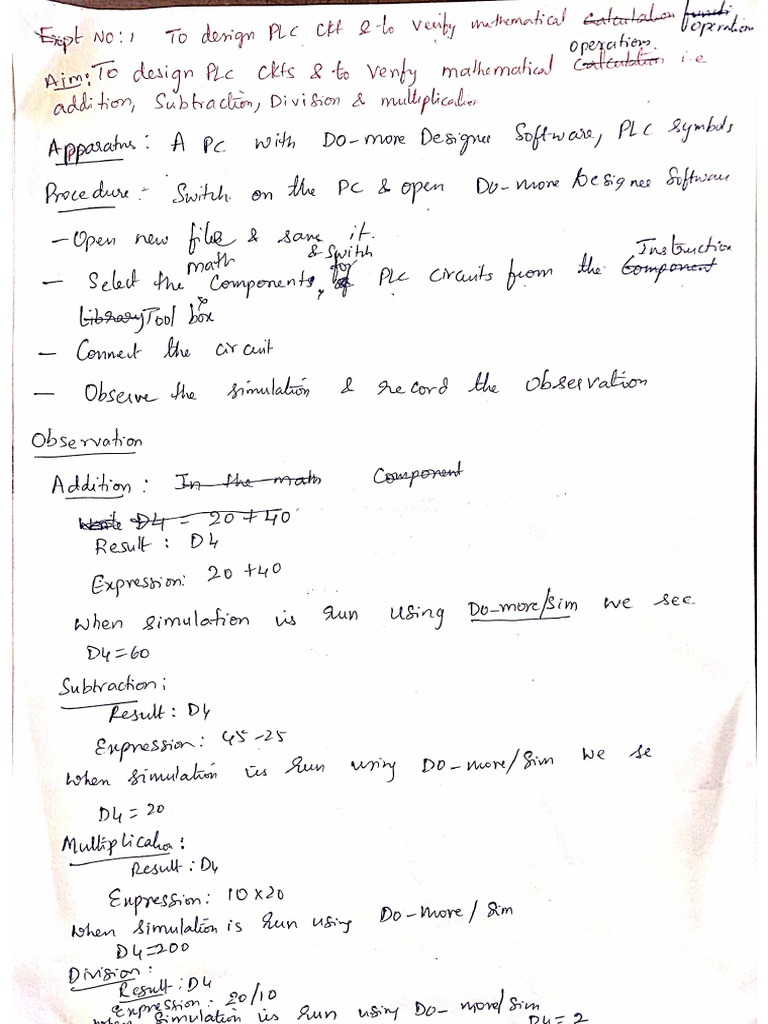 Expt No:1 To design PLC Ckt & to verify mathematical Calculation functi operation
Aim: To design PLC Ckts & to verify mathematical Calculation operation i.e
addition, Subtraction, Division & multiplication
Apparatus: A PC with Do-more Designer Software, PLC symbols
Procedure:- Switch on the PC & open Do-more Designer Software
- Open new files & save it.
- Select the math Components, & switch for PLC circuits from the Component Instruction
Library Tool box
- Connect the circuit
- Observe the simulation & record the observation
Observation
Addition: In the math Component
Write D4 = 20+40
Result: D4
Expression: 20+40
When simulation is run using Do-more/Sim we see
D4=60
Subtraction:
Result: D4
Expression: 45-25
When simulation is run using Do-more/Sim we se
D4=20
Multiplication:
Result: D4
Expression: 10x20
When simulation is run using Do-more/Sim
D4=200
Division:
Result: D4
Expression: 20/10
When simulation is run using Do-more/Sim
D4=2